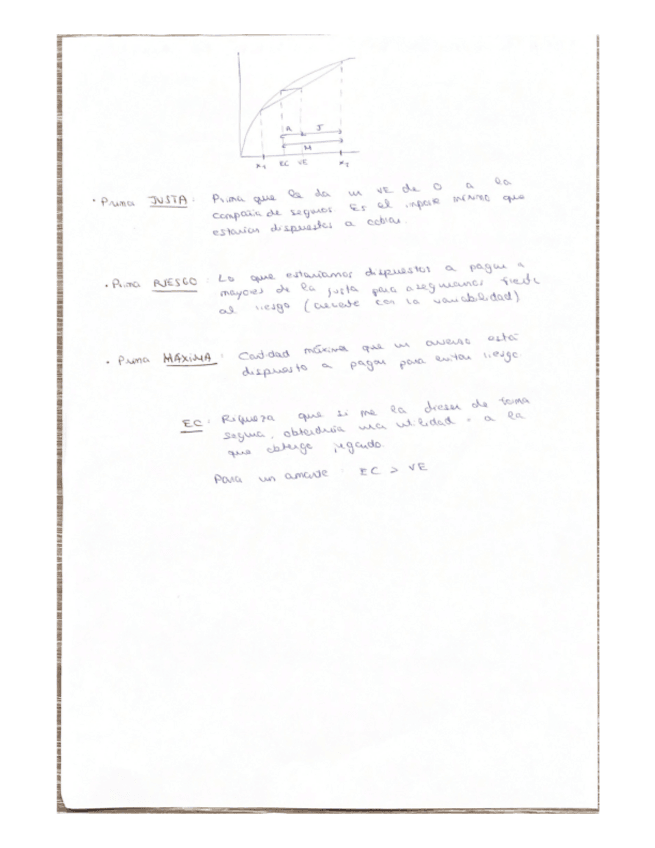 R J
M
x₁ EC VE x₂
• Prima JUSTA: Prima que le da un VE de 0 a la
compañía de seguros. Es el importe mínimo que
estarían dispuestos a cobrar.
• Prima RIESGO: Lo que estaríamos dispuestos a pagar a
mayores de la justa para asegurarnos frente
al riesgo ( con la variabilidad)
• Prima MÁXIMA: Cantidad máxima que un averso está
dispuesto a pagar para evitar riesgo.
EC: Riqueza que si me la diesen de forma
segura, obtendría una utilidad = a la
que obtengo jugando.
Para un amante: EC > VE